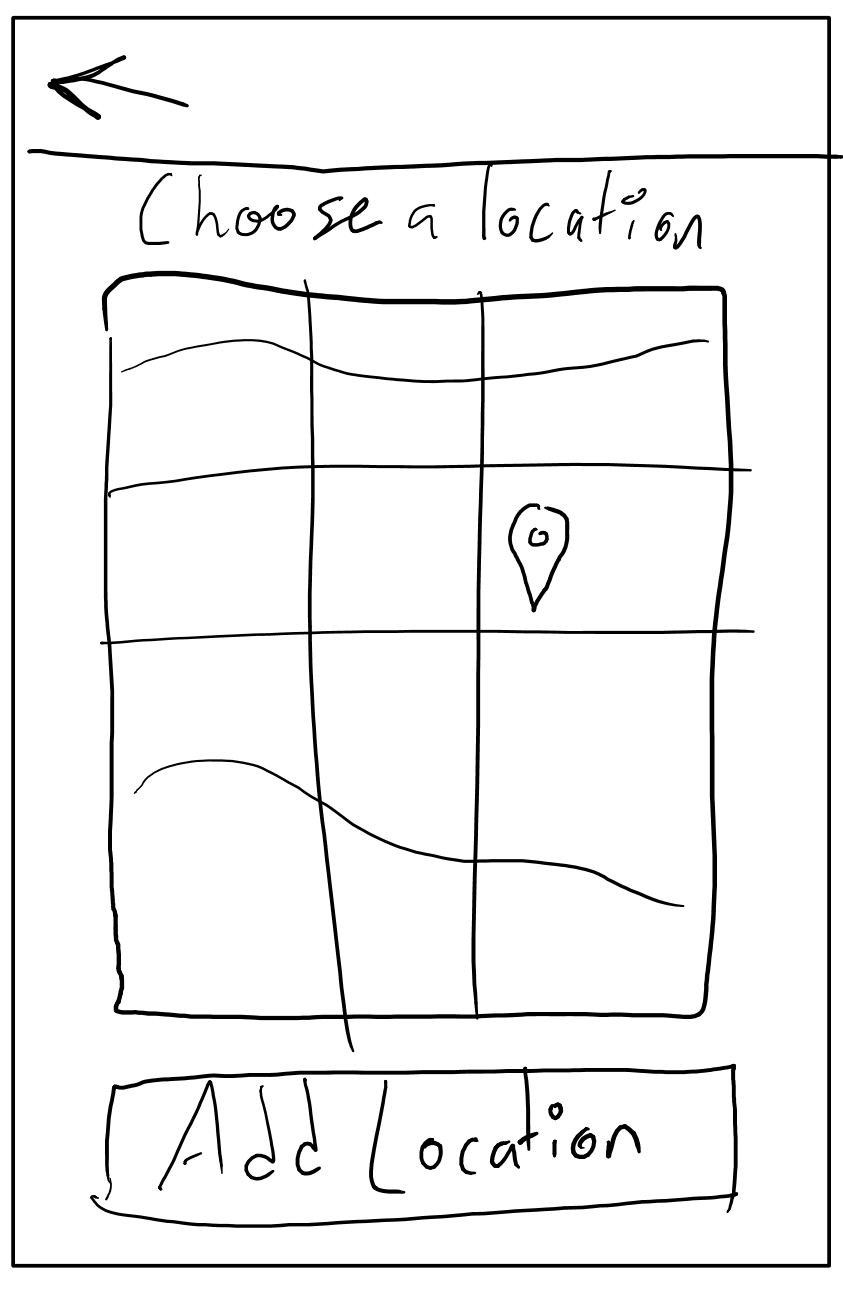 Choose a location
Add Location